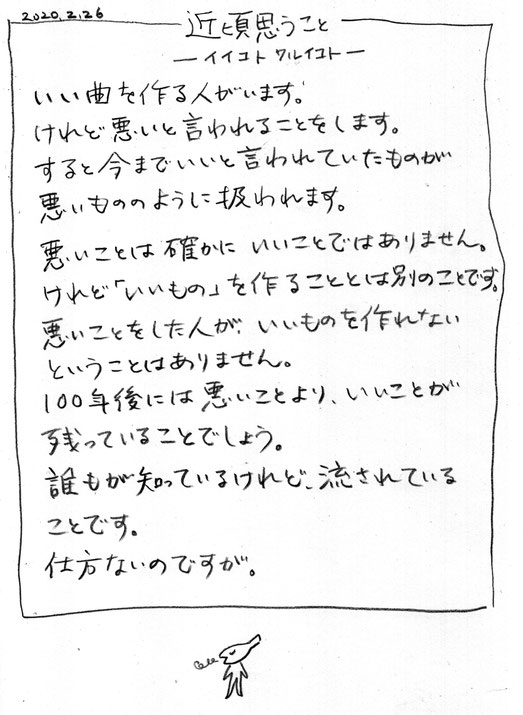 2020.2.26
近頃思うこと
ーイイコト ワルイコトー
いい曲を作る人がいます。
けれど悪いと言われることをします。
すると今までいいと言われていたものが
悪いもののように扱われます。
悪いことは確かにいいことではありません。
けれど「いいもの」を作ることとは別のことです。
悪いことをした人が、いいものを作れない
ということはありません。
100年後には悪いことより、いいことが
残っていることでしょう。
誰もが知っているけれど、流されている
ことです。
仕方ないのですが。